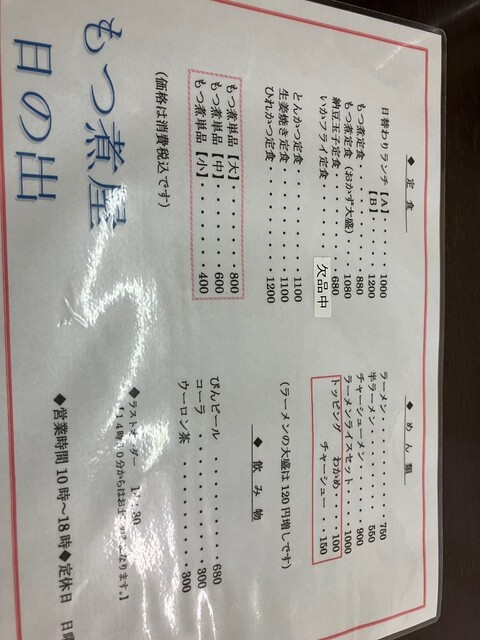 ◆ 定 食
日替わりランチ【A】・・・・1000
【B】・・・・1200
もつ煮定食・・・・・・・・・880
もつ煮定食(おかず大盛)・1080
納豆玉子定食・・・・・・・・680
いかフライ定食・・・・・・ 欠品中
とんかつ定食・・・・・・・1100
生姜焼き定食・・・・・・・1100
ひれかつ定食・・・・・・・1200
もつ煮単品【大】・・・・・・800
もつ煮単品【中】・・・・・・600
もつ煮単品【小】・・・・・・400
(価格は消費税込です)
もつ煮屋
日の出
◆ めん 類
ラーメン・・・・・・・・・・750
半ラーメン・・・・・・・・・550
チャーシューメン・・・・・・900
ラーメンライスセット・・・1000
トッピング わかめ・・・・100
チャーシュー ・150
(ラーメンの大盛は120円増しです)
◆ 飲 み 物
びんビール・・・・・・・・・680
コーラ・・・・・・・・・・・300
ウーロン茶・・・・・・・・・300
◆ラストオーダー :30
からはお になります。】
◆営業時間10時～18時◆定休日 日曜